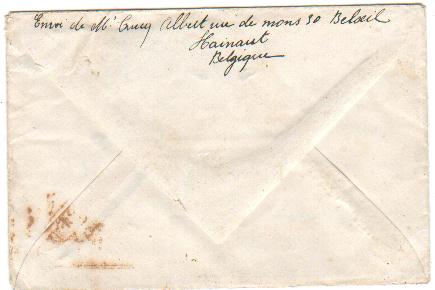 Envoi de Mr Cucq Albert rue de mons 30 Belœil
Hainaut
Belgique